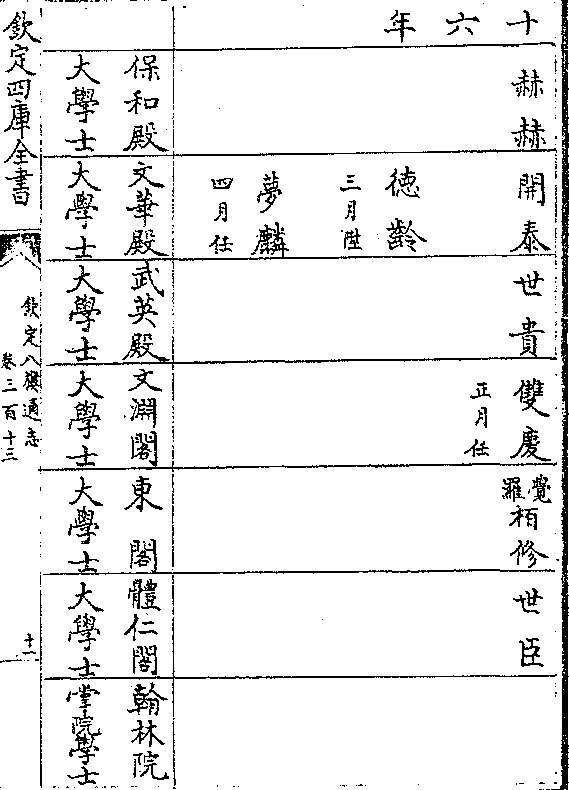 十六年
赫赫
開泰
世貴
雙慶
正月任
覺羅栢修
世臣
德齡
三月陞
夢麟
四月任
保和殿
大學士
文華殿
大學士
武英殿
大學士
文淵閣
大學士
東閣
大學士
體仁閣
大學士
翰林院
掌院學士
欽定四庫全書
欽定八旗通志
卷三百十三
十一